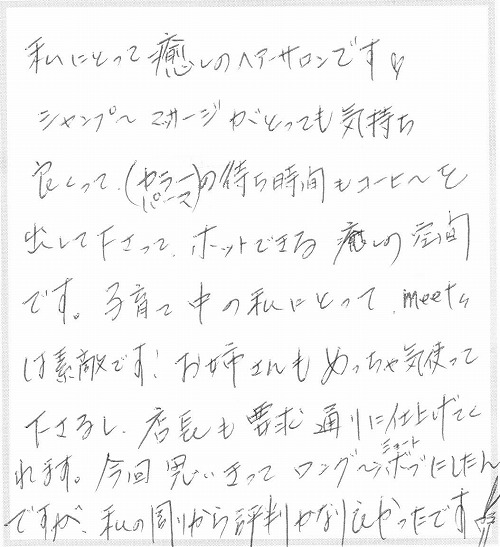 私にとって癒しのヘアーサロンです♡
シャンプ～マサージがとっても気持ち
良くって、(カラー パーマ)の待ち時間もコーヒ～を
出して下さって、ホットできる癒しの空間
です。子育て中の私にとって、meetｯ
は素敵です！お姉さんもめっちゃ気使って
下さるし、店長も要求通りに仕上げてく
れます。今回思いきってロング～ショートボブにしたん
ですが、私の周りから評判かなり良かったです!!